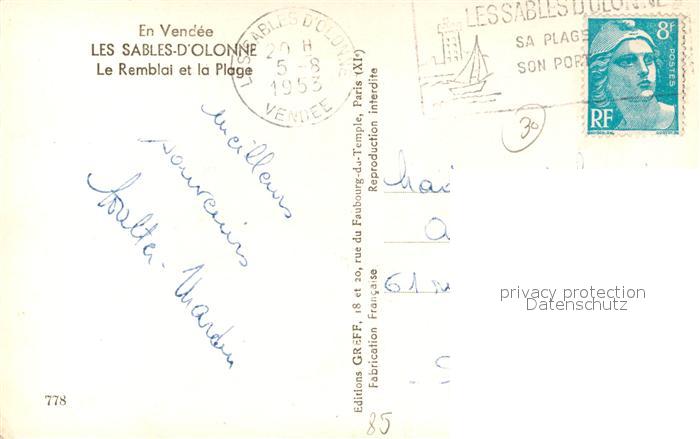 En Vendée
LES SABLES-D'OLONNE
Le Remblai et la Plage
LES SABLES D'OLONNE
20 H
5-8
1953
VENDEE
LES SABLES D'OLONNE
SA PLAGE
SON PORT
8F
POSTES
RF
30
meilleurs
souvenirs
Walter
Editions GREFF, 18 et 20, rue du Faubourg-du-Temple, Paris (XIe)
Reproduction interdite
Fabrication Française
61
privacy protection
Datenschutz
778
85